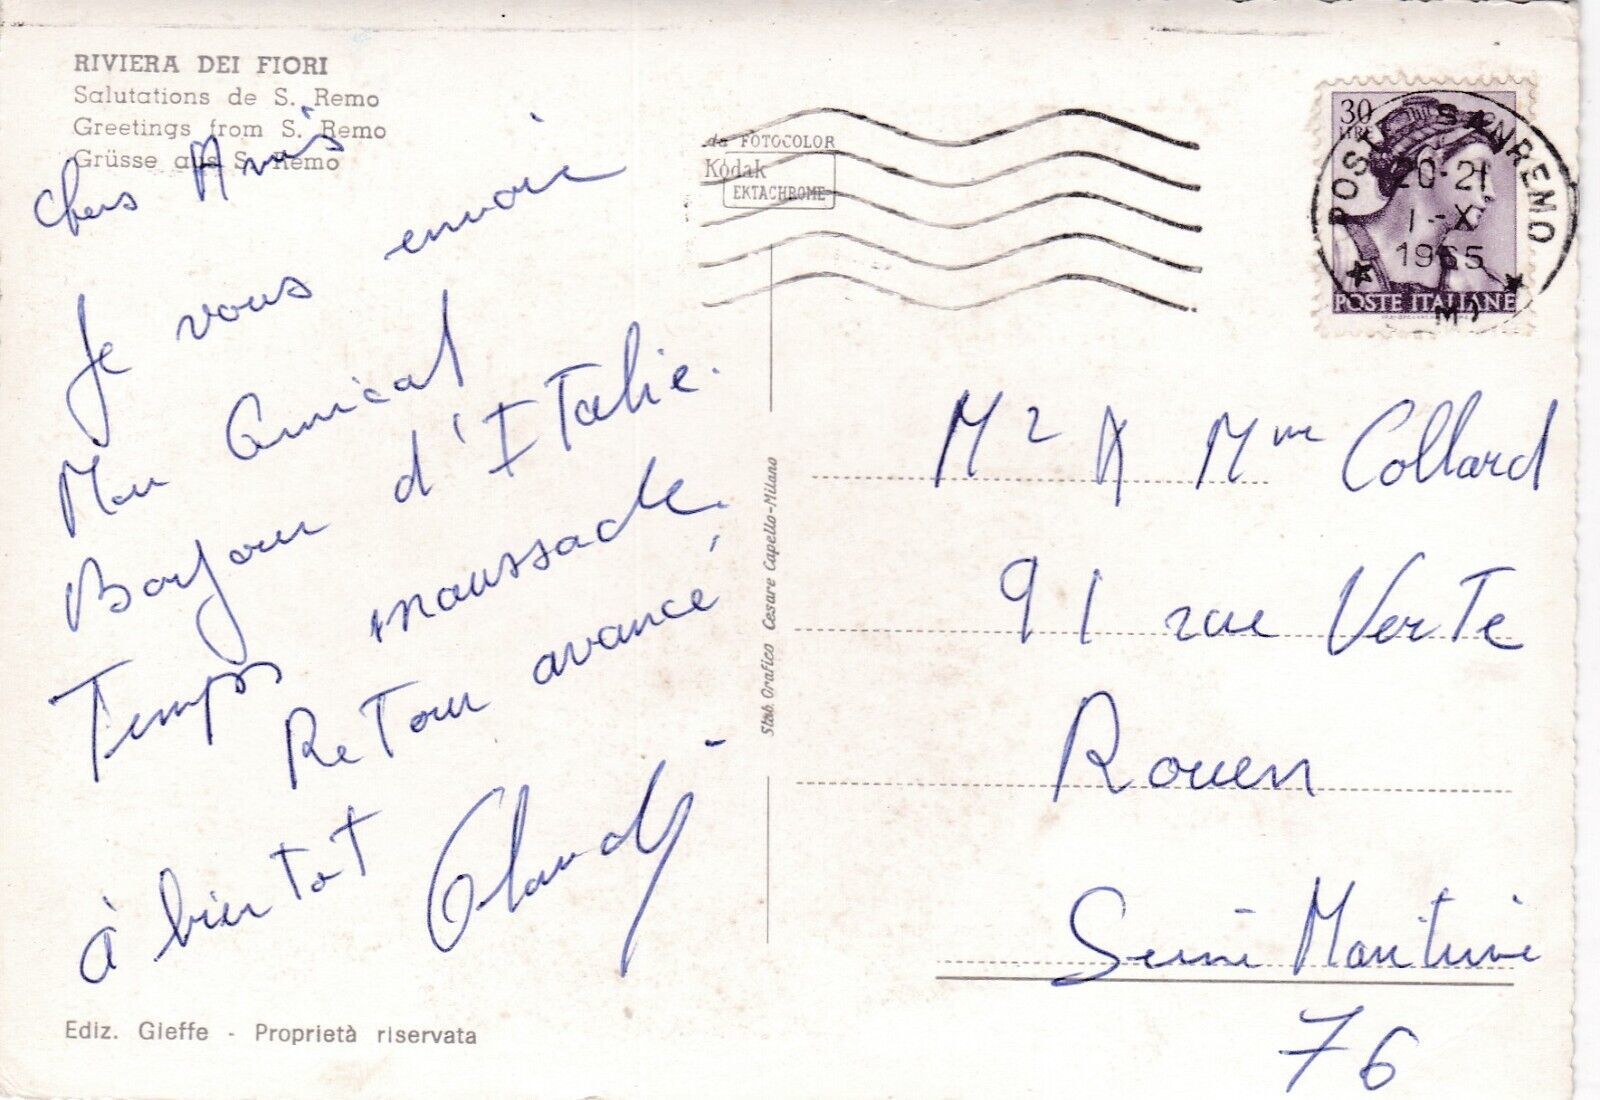 RIVIERA DEI FIORI
Salutations de S. Remo
Greetings from S. Remo
Grüsse aus S. Remo
Chers Amis
Je vous envoie
Mon Amical
Bonjour d'Italie.
Temps maussade.
Retour avancé,
à bientot
Ediz. Gieffe - Proprietà riservata
da FOTOCOLOR
Kodak
EKTACHROME
Stab. Grafico Cesare Capello-Milano
30
LIRE
POSTE ITALIANE
POSTE SANREMO
20-21
1-X
1965
Mr & Mme Collard
91 rue Verte
Rouen
Seine Maritime
76